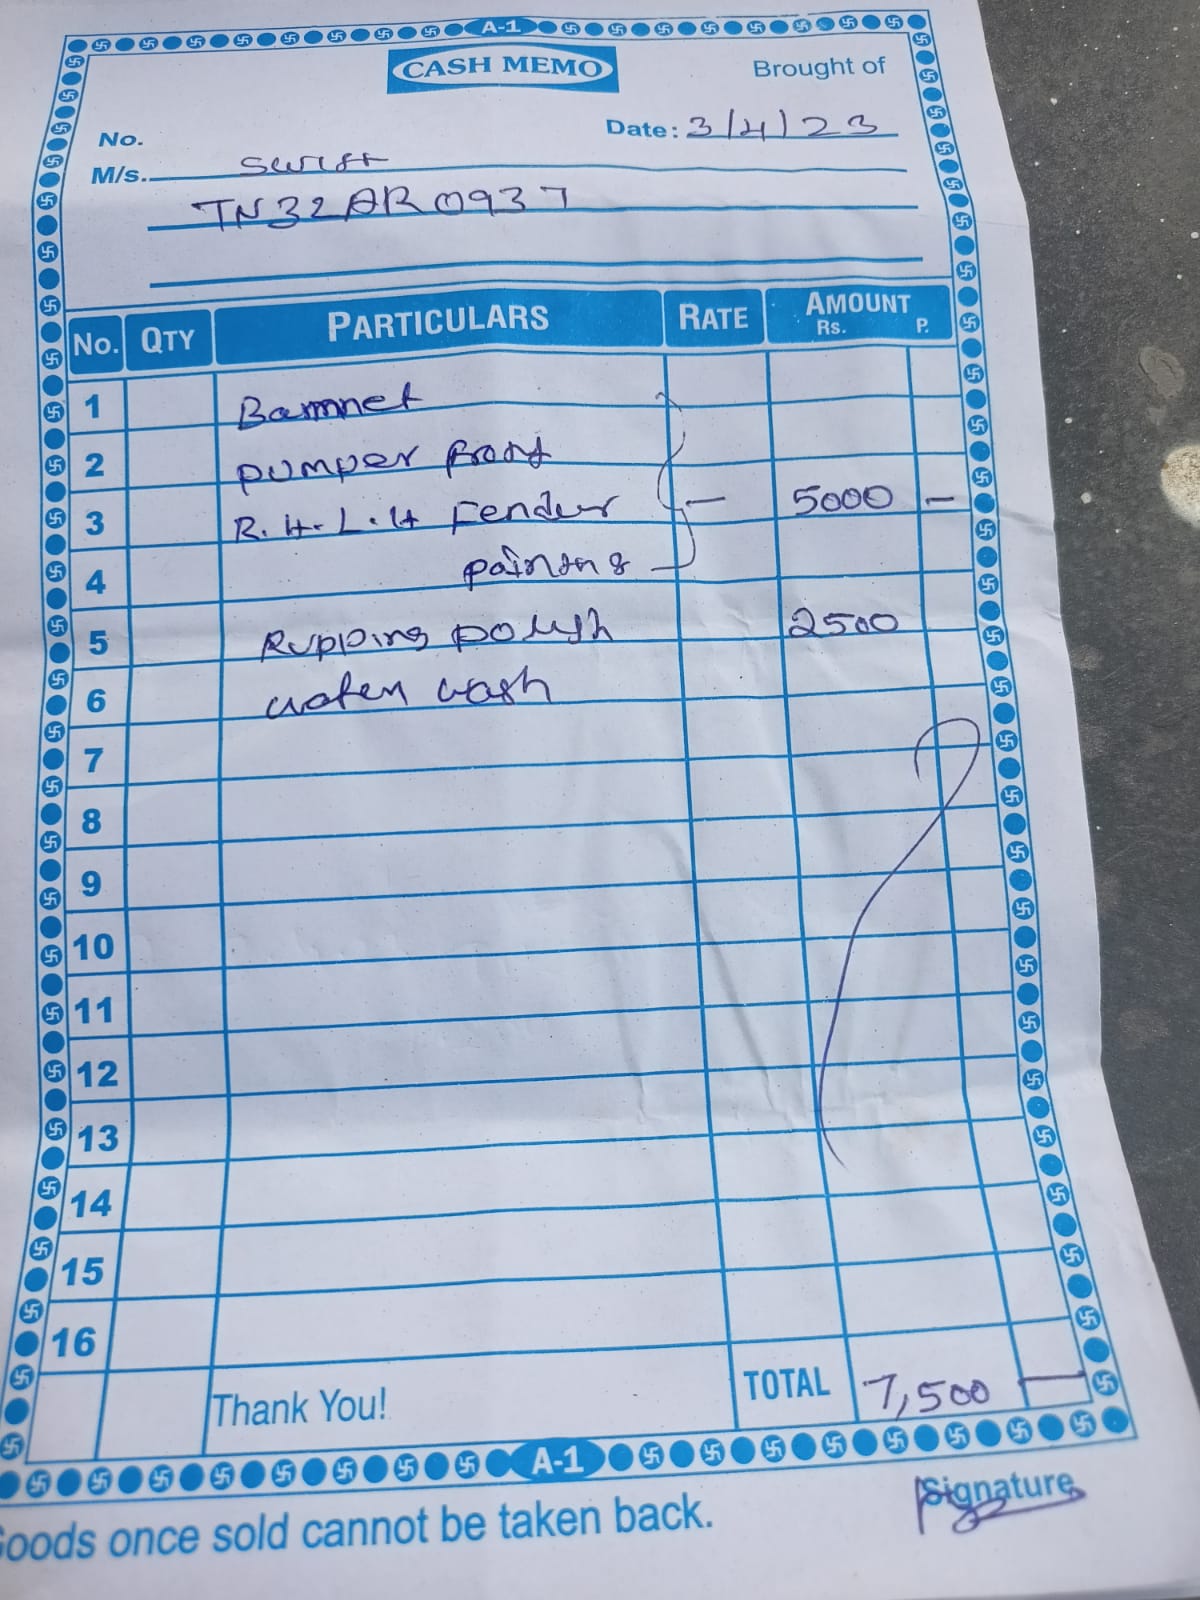 A-1
CASH MEMO
Brought of
No.
Date: 3/4/23
M/s. Swift
TN32AR0937
No. QTY PARTICULARS RATE AMOUNT
Rs. P.
1 Bamnet
2 pumper front
3 R.H. L.H Fender — 5000 —
4 painting
5 Rupping polish 2500
6 water wash
7
8
9
10
11
12
13
14
15
16
Thank You! TOTAL 7,500 —
A-1
Signature
Goods once sold cannot be taken back.